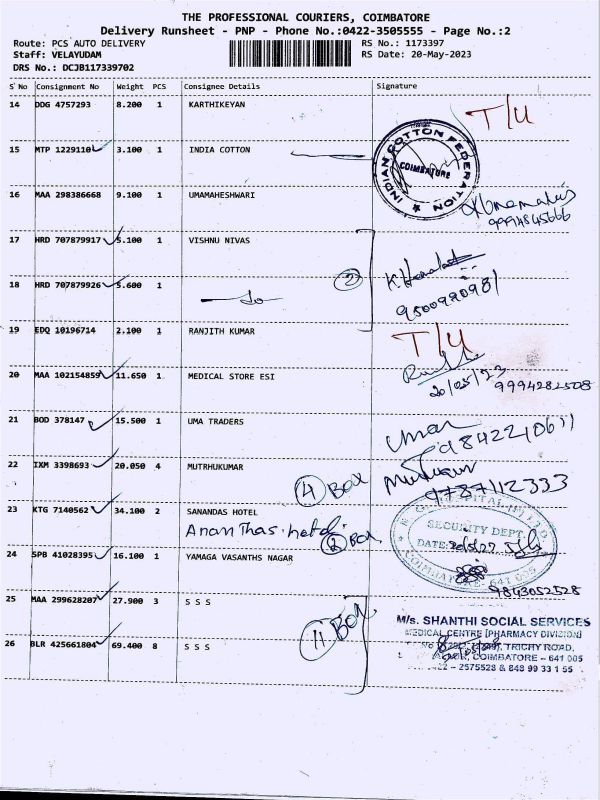 THE PROFESSIONAL COURIERS, COIMBATORE
Delivery Runsheet - PNP - Phone No.:0422-3505555 - Page No.:2
Route: PCS AUTO DELIVERY RS No.: 1173397
Staff: VELAYUDAM RS Date: 20-May-2023
DRS No.: DCJB117339702
S No Consignment No Weight PCS Consignee Details Signature
14 DDG 4757293 8.200 1 KARTHIKEYAN T/U
15 MTP 1229110 3.100 1 INDIA COTTON
INDIAN COTTON FEDERATION
COIMBATORE
16 MAA 298386668 9.100 1 UMAMAHESHWARI
9994845666
17 HRD 707879917 5.100 1 VISHNU NIVAS
18 HRD 707879926 5.600 1 2
9500990981
19 EDQ 10196714 2.100 1 RANJITH KUMAR T/U
20 MAA 102154859 11.650 1 MEDICAL STORE ESI
20/05/23 9994282508
21 BOD 378147 15.500 1 UMA TRADERS
9842210611
22 IXM 3398693 20.050 4 MUTRHUKUMAR
4 Box 9787112333
23 KTG 7140562 34.100 2 SANANDAS HOTEL
Ananthas hotel
2 Box
SECURITY DEPT.
DATE:
COIMBATORE - 641 005
24 SPB 41028395 16.100 1 YAMAGA VASANTHS NAGAR
9843052528
25 MAA 299628207 27.900 3 S S S
11 Box
M/s. SHANTHI SOCIAL SERVICES
MEDICAL CENTRE [PHARMACY DIVISION]
TRICHY ROAD,
26 BLR 425661804 69.400 8 S S S
COIMBATORE – 641 005
2575528 & 848 99 33 1 55